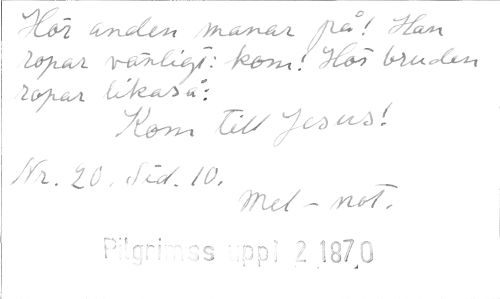 Hör anden manar på! Han
ropar vänligt: kom! Hör bruden
ropar likaså:
Kom till Jesus!
Nr. 20. Sid. 10.
Mel-not.
Pilgrimss uppl 2 1870